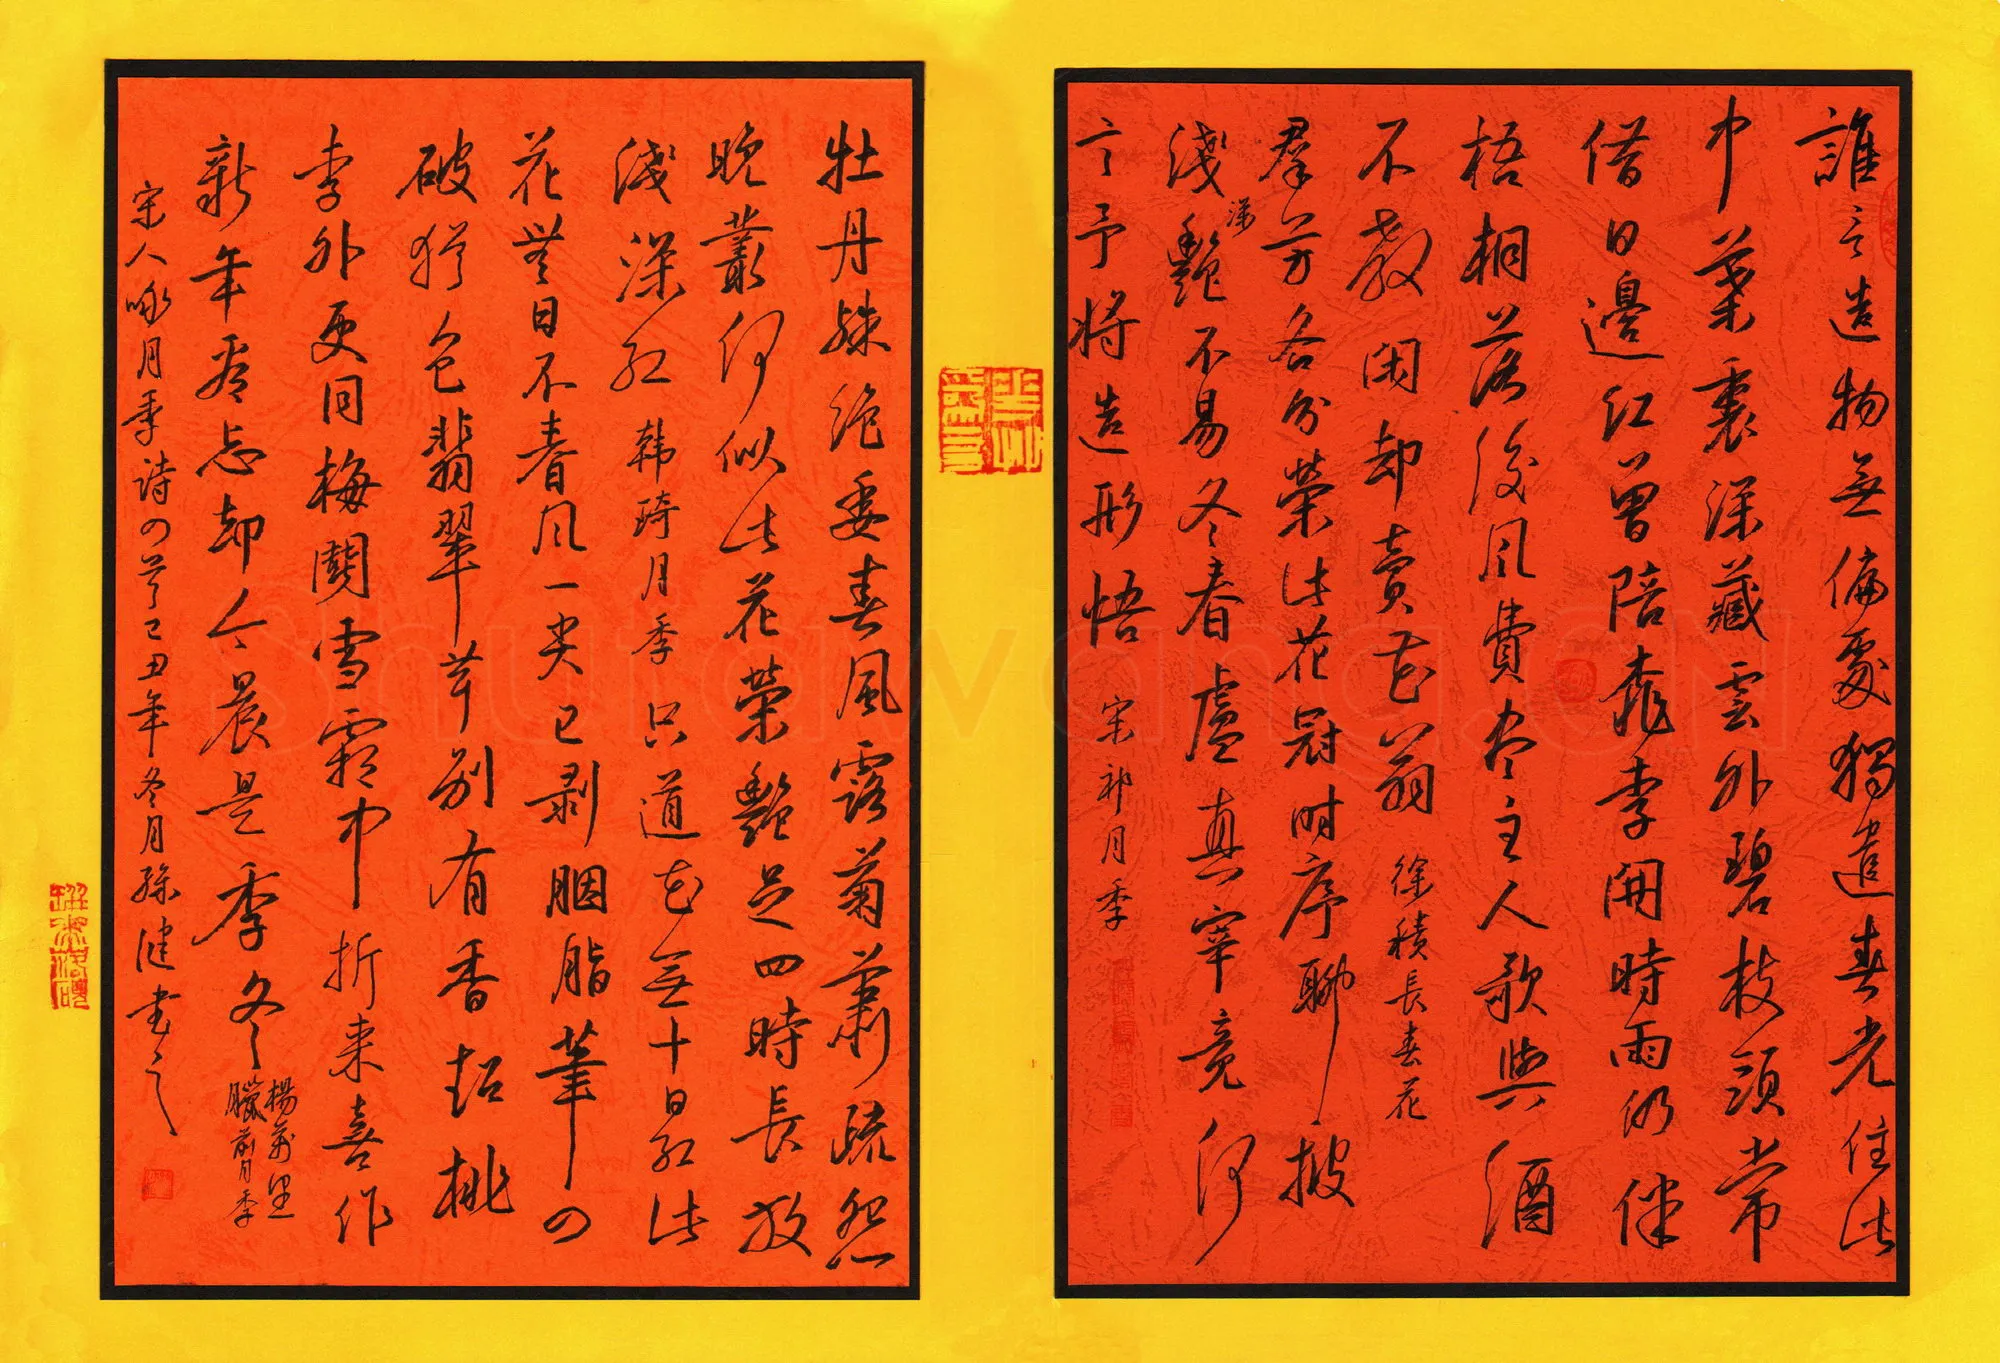 誰言造物無偏處獨遣春光住此
中葉裏深藏雲外碧枝頭常
借日邊紅曾陪桃李開時雨仍伴
梧桐落後風費盡主人歌與酒
不教閑却賣花翁 徐積長春花
群芳各分榮此花冠時序聊披
淺深艷不易冬春慮真宰竟何
言予將造形悟 宋祁月季
牡丹殊絶委春風露菊蕭疏怨
晚叢何似此花榮艷足四時長放
淺深紅 韩琦月季 只道花無十日红此
花無日不春风一尖已剥胭脂筆四
破猶包翡翠茸别有香超桃
李外更同梅鬪雪霜中折来喜作
新年看忘却今晨是季冬 楊萬里臘前月季
宋人咏月季詩四首己丑年冬月孫健書之
Shufawang.CN